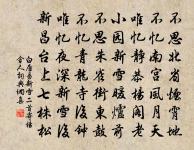 不思北省煙霄地
不憶南宮風月天
唯憶靜恭楊閣老
小園新雪暖爐前
不思朱雀街東鼓
不憶青龍寺後鐘
唯憶夜深新雪後
新昌台上七株松
白居易新雪二首寄楊
舍人詞典網